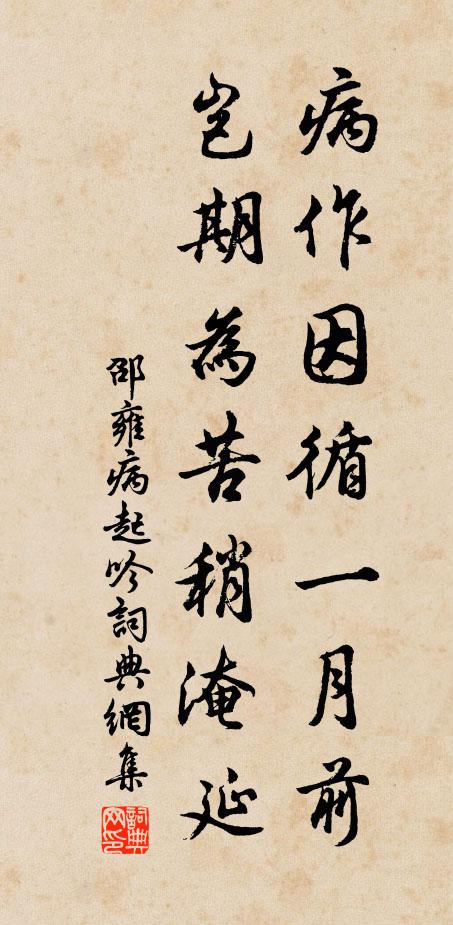 病作因循一月前
豈期為苦稍淹延
邵雍病起吟詞典網集
詞典網印